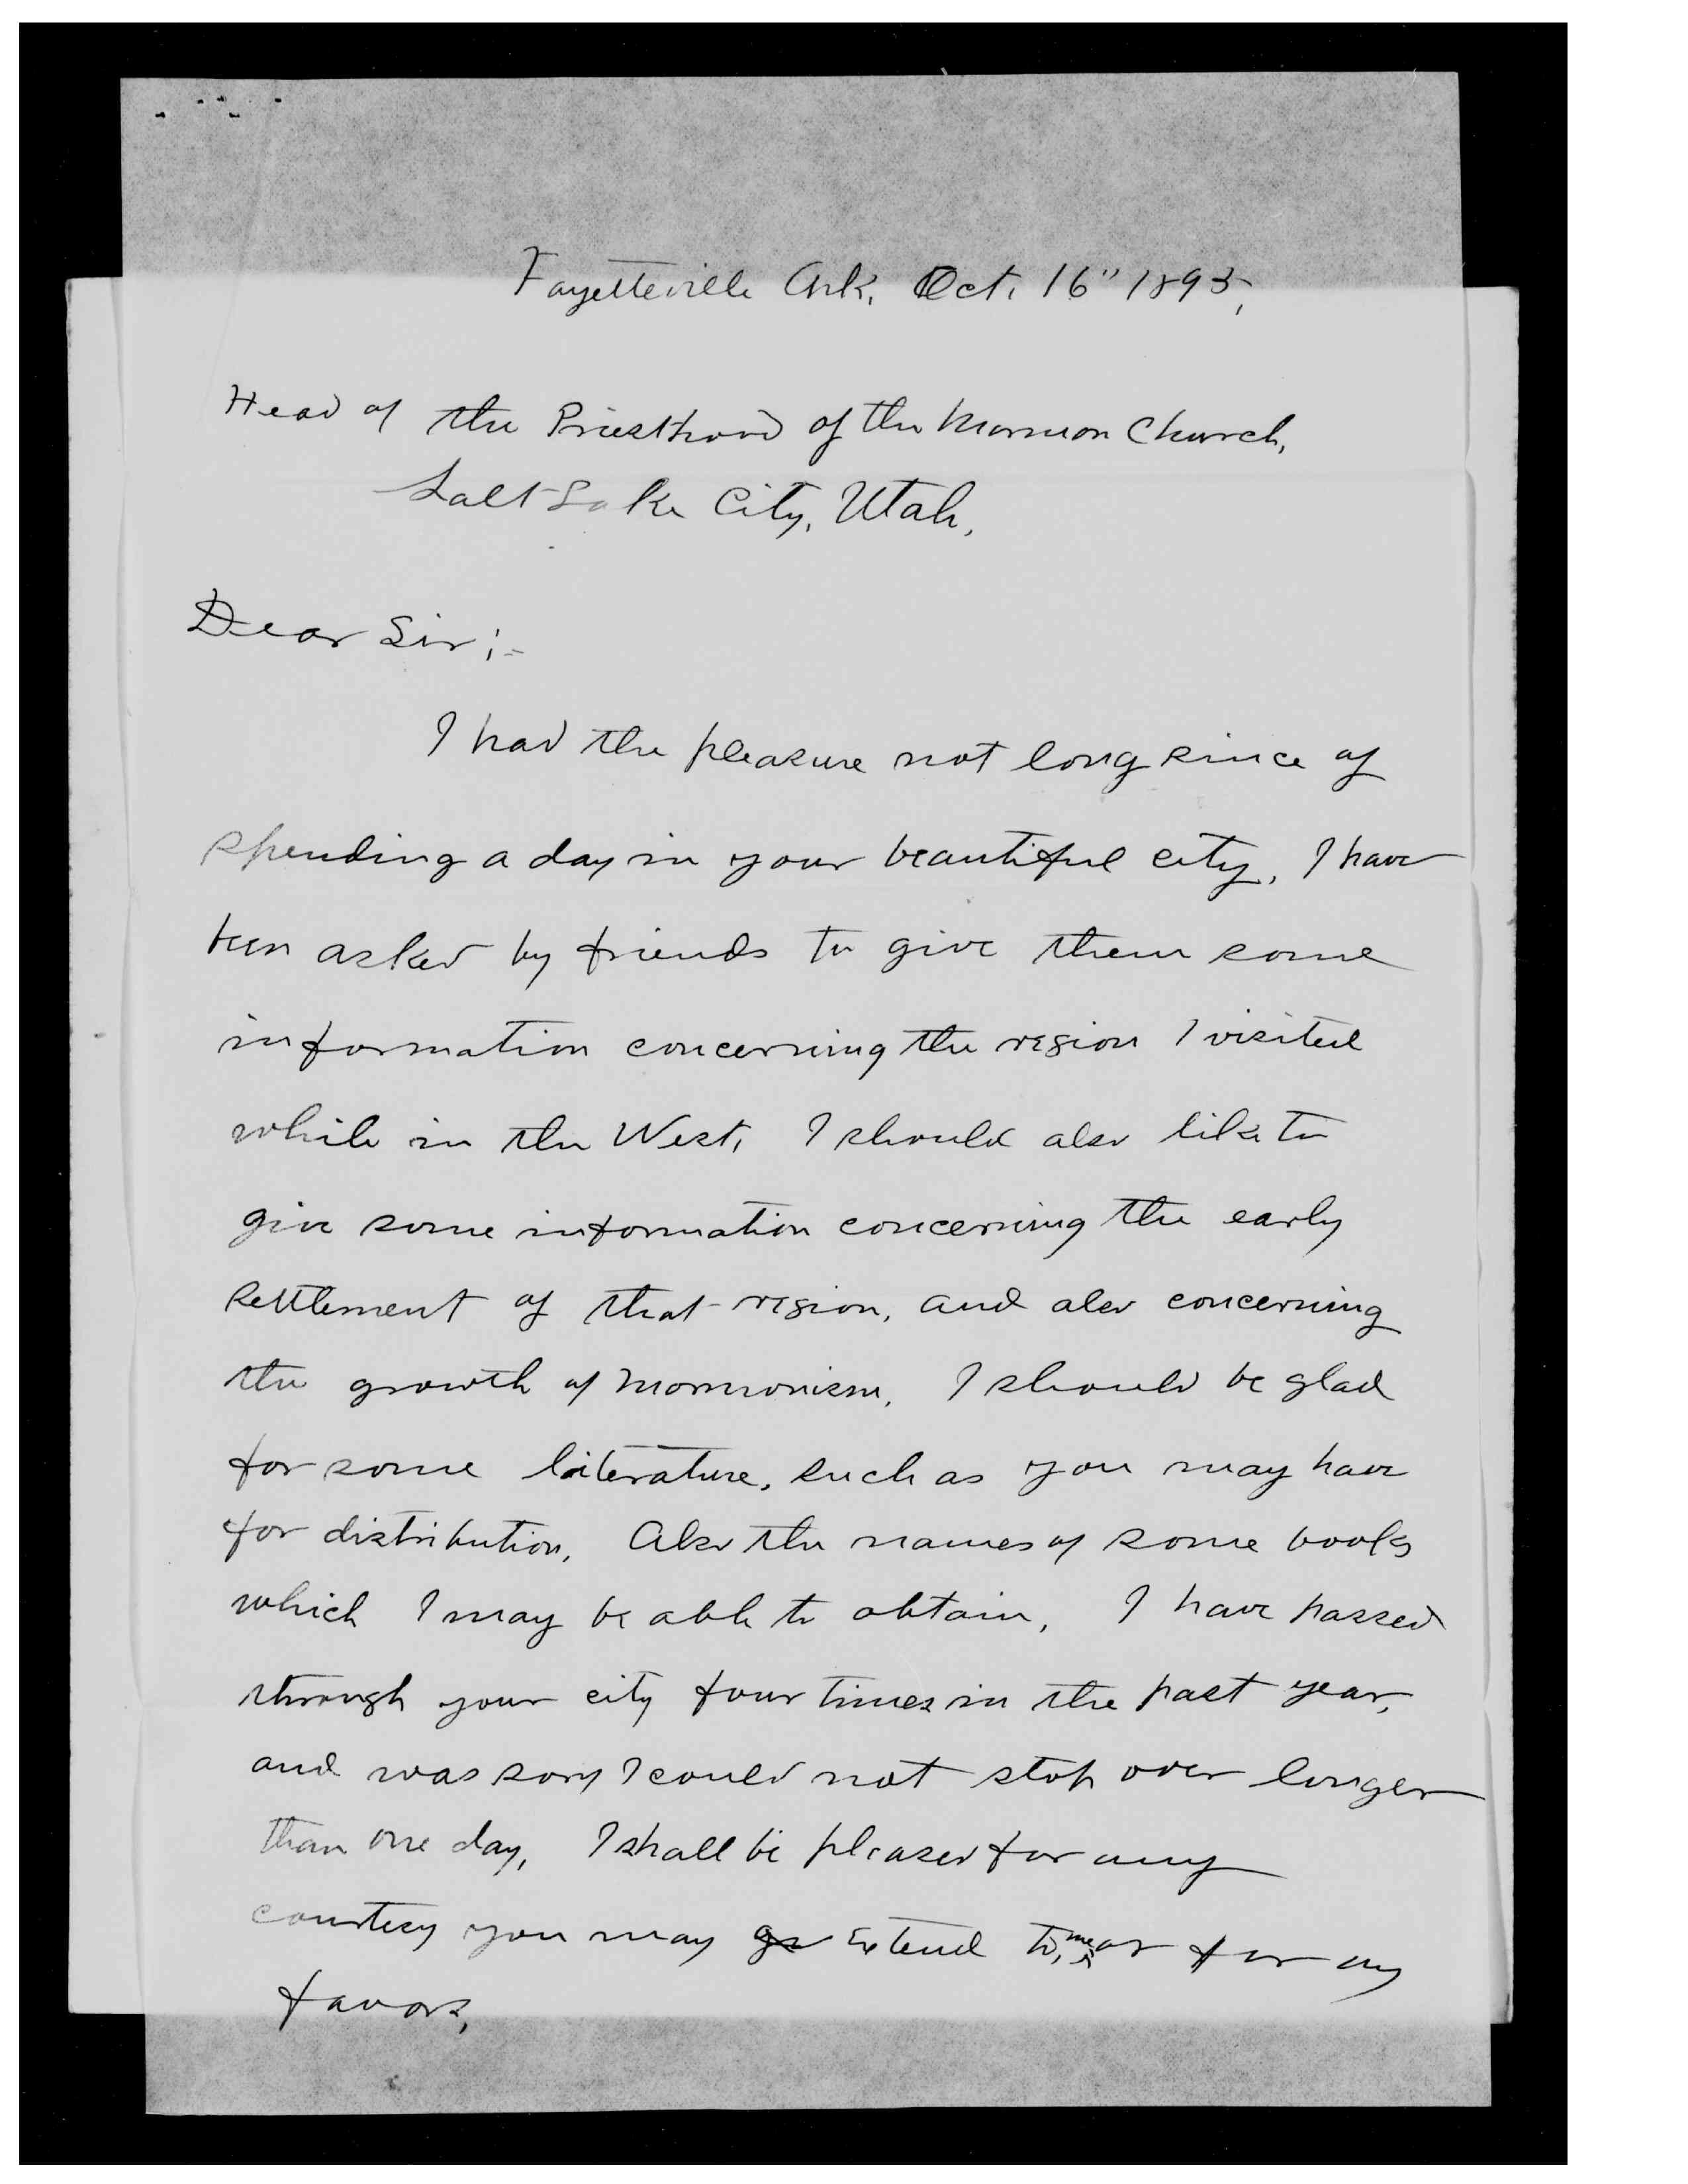 Fayetteville Ark. Oct. 16" 1895,
Head of the Priesthood of the Mormon Church,
Salt Lake City, Utah,
Dear Sir;-
I had the pleasure not long since of
spending a day in your beautiful city, I have
been asked by friends to give them some
information concerning the region I visited
while in the West, I should also like to
give some information concerning the early
settlement of that region, and also concerning
the growth of Mormonism, I should be glad
for some literature, such as you may have
for distribution, Also the names of some books
which I may be able to obtain, I have passed
through your city four times in the past year,
and was sory I could not stop over longer
than one day, I shall be pleased for any
courtesy you may extend to, me or for any
favors,